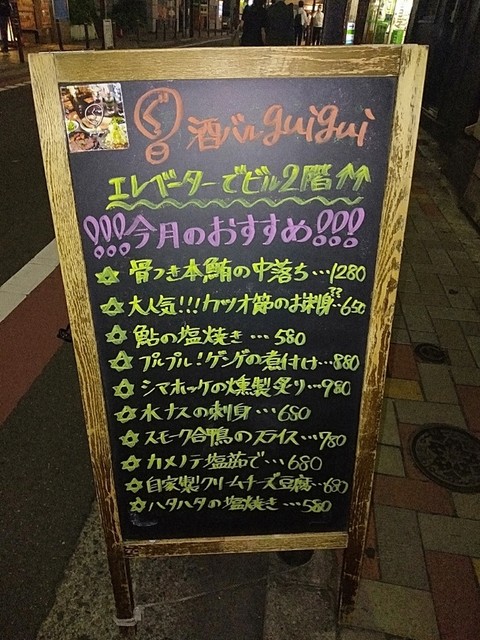 酒バル guigui
エレベーターでビル2階↑↑
!!!今月のおすすめ!!!
☆骨つき本鮪の中落ち…1280
☆大人気!!!カツオ節のお刺身…650
☆鮎の塩焼き…580
☆プルプル!ゲンゲの煮付け…880
☆シマホッケの燻製炙り…980
☆水ナスの刺身…680
☆スモーク合鴨のスライス…780
☆カメノテ塩茹で…680
☆自家製クリームチーズ豆腐…680
☆ハタハタの塩焼き…580